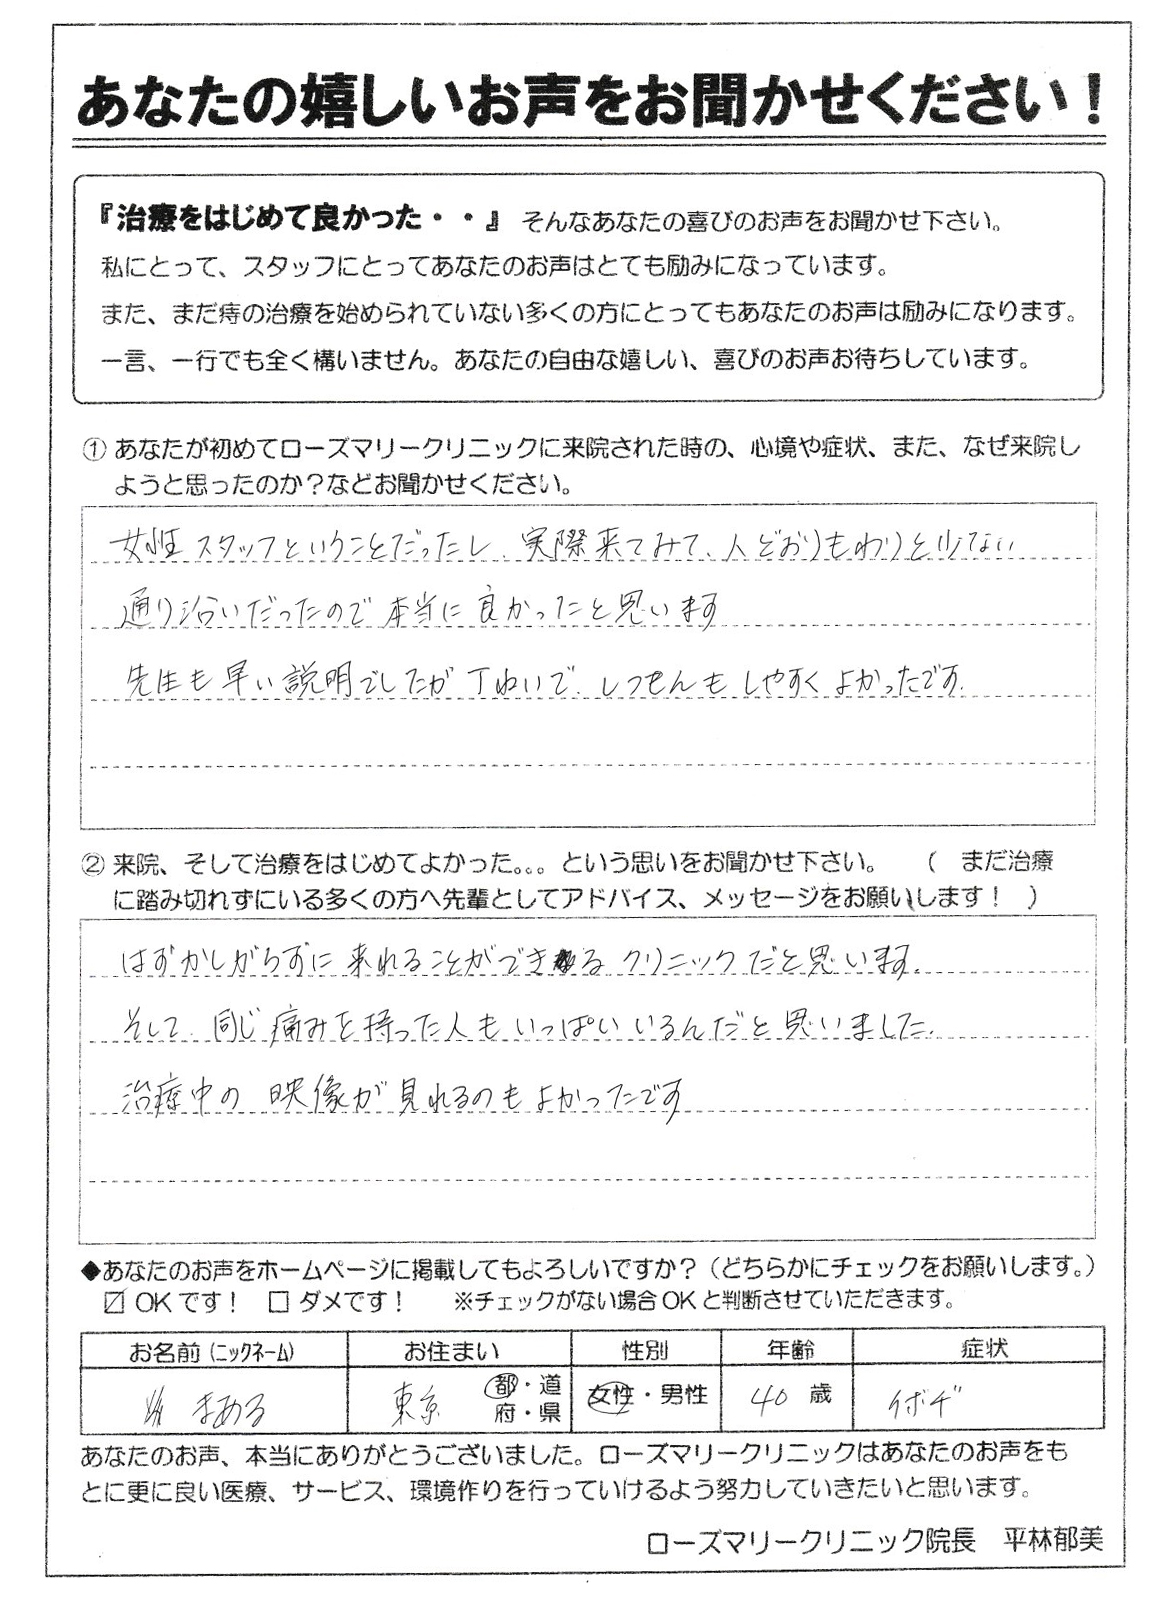 あなたの嬉しいお声をお聞かせください！
『治療をはじめて良かった・・』 そんなあなたの喜びのお声をお聞かせ下さい。
私にとって、スタッフにとってあなたのお声はとても励みになっています。
また、まだ痔の治療を始められていない多くの方にとってもあなたのお声は励みになります。
一言、一行でも全く構いません。あなたの自由な嬉しい、喜びのお声お待ちしています。
① あなたが初めてローズマリークリニックに来院された時の、心境や症状、また、なぜ来院し
ようと思ったのか？などお聞かせください。
女性スタッフということだったし、実際来てみて、人どおりもわりと少ない
通り沿いだったので本当に良かったと思います
先生も早い説明でしたが丁ねいで、しつもんもしやすくよかったです。
② 来院、そして治療をはじめてよかった。。。という思いをお聞かせ下さい。 （ まだ治療
に踏み切れずにいる多くの方へ先輩としてアドバイス、メッセージをお願いします！ ）
はずかしがらずに来れることができる クリニックだと思います。
そして、同じ痛みを持った人もいっぱいいるんだと思いました。
治療中の映像が見れるのもよかったです
◆あなたのお声をホームページに掲載してもよろしいですか？（どちらかにチェックをお願いします。）
☑ OKです！ □ ダメです！ ※チェックがない場合OKと判断させていただきます。
お名前（ニックネーム） お住まい 性別 年齢 症状
まめる 東京 都・道 女性・男性 40 歳 イボヂ
府・県
あなたのお声、本当にありがとうございました。ローズマリークリニックはあなたのお声をも
とに更に良い医療、サービス、環境作りを行っていけるよう努力していきたいと思います。
ローズマリークリニック院長 平林郁美